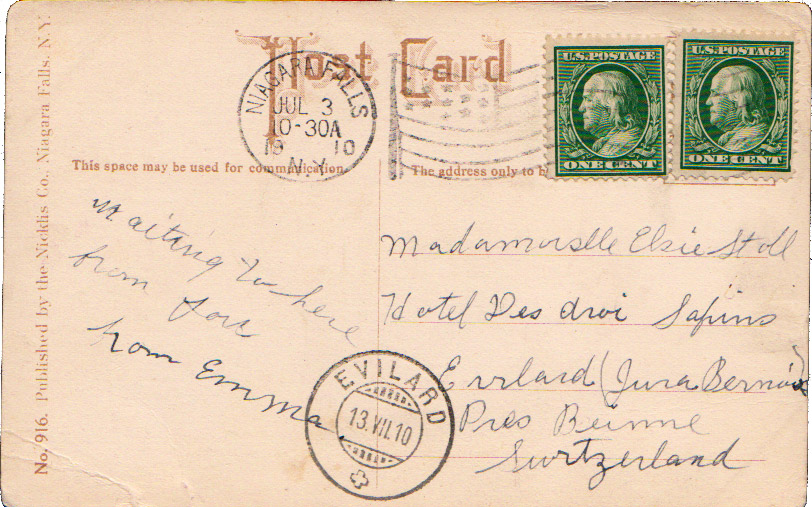 Post Card
NIAGARA FALLS
JUL 3
10-30A
19 10
N.Y.
U.S. POSTAGE
ONE CENT
U.S. POSTAGE
ONE CENT
This space may be used for communication.
The address only to b
No. 916. Published by the Nicklis Co., Niagara Falls, N.Y.
Waiting to here
from you
from Emma.
Madamoiselle Elsie Stoll
Hotel Des droi Sapins
Evilard (Jura Bernois)
Pres Beinne
Switzerland
EVILARD
13.VII.10